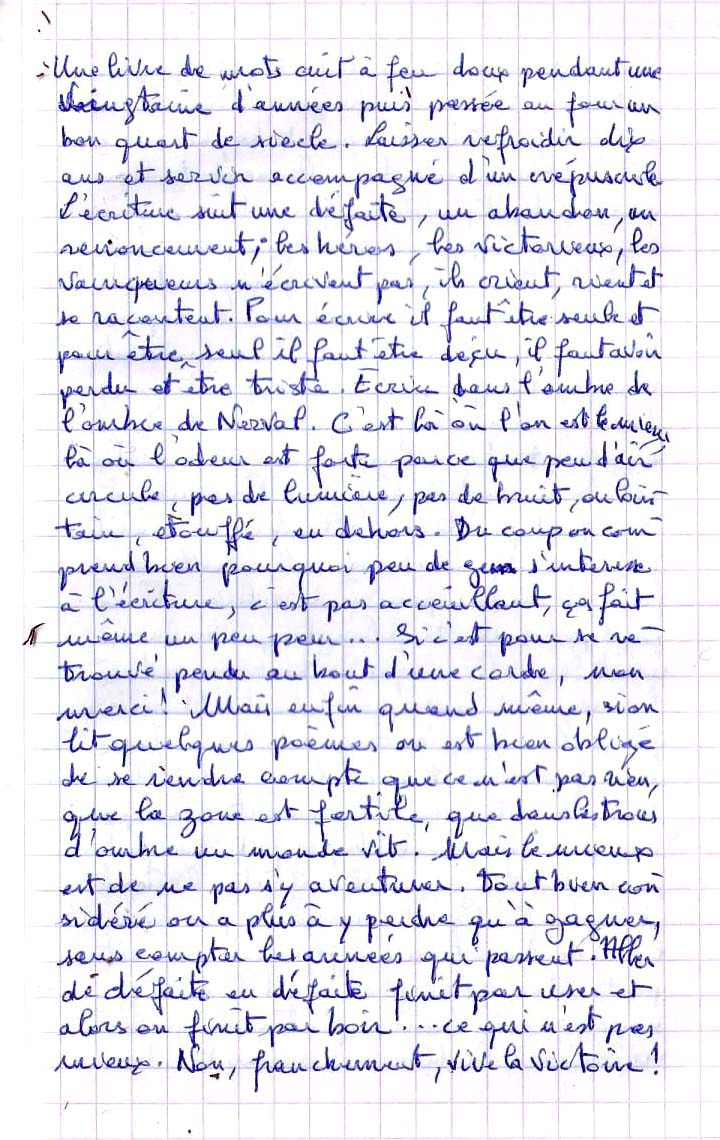 Une livre de mots cuit à feu doux pendant une
vingtaine d'années puis passée au four un
bon quart de siècle. Laisser refroidir dix
ans et servir accompagné d'un crépuscule
L'écriture suit une défaite, un abandon, un
renoncement, les héros, les victorieux, les
vainqueurs n'écrivent pas, ils crient, rient et
se racontent. Pour écrire il faut être seul et
pour être seul il faut être déçu, il faut avoir
perdu et être triste. Ecrire dans l'ombre de
l'ombre de Nerval. C'est là où l'on est le mieux,
là où l'odeur est forte parce que peu d'air
circule, pas de lumière, pas de bruit, ou loin-
tain, étouffé, en dehors. Du coup on com-
prend bien pourquoi peu de gens s'interesse
à l'écriture, c'est pas acceuillant, ça fait
même un peu peur... Si c'est pour se re-
trouvé pendu au bout d'une corde, non
merci! Mais enfin quand même, si on
lit quelques poèmes on est bien obligé
de se rendre compte que ce n'est pas rien,
que la zone est fertile, que dans les trous
d'ombre un monde vit. Mais le mieux
est de ne pas s'y aventurer. Tout bien con-
sidéré on a plus à y perdre qu'à gagner,
sans compter les années qui passent. Aller
de défaite en défaite finit par user et
alors on finit par boir... ce qui n'est pas
mieux. Non, franchement, vive la victoire!